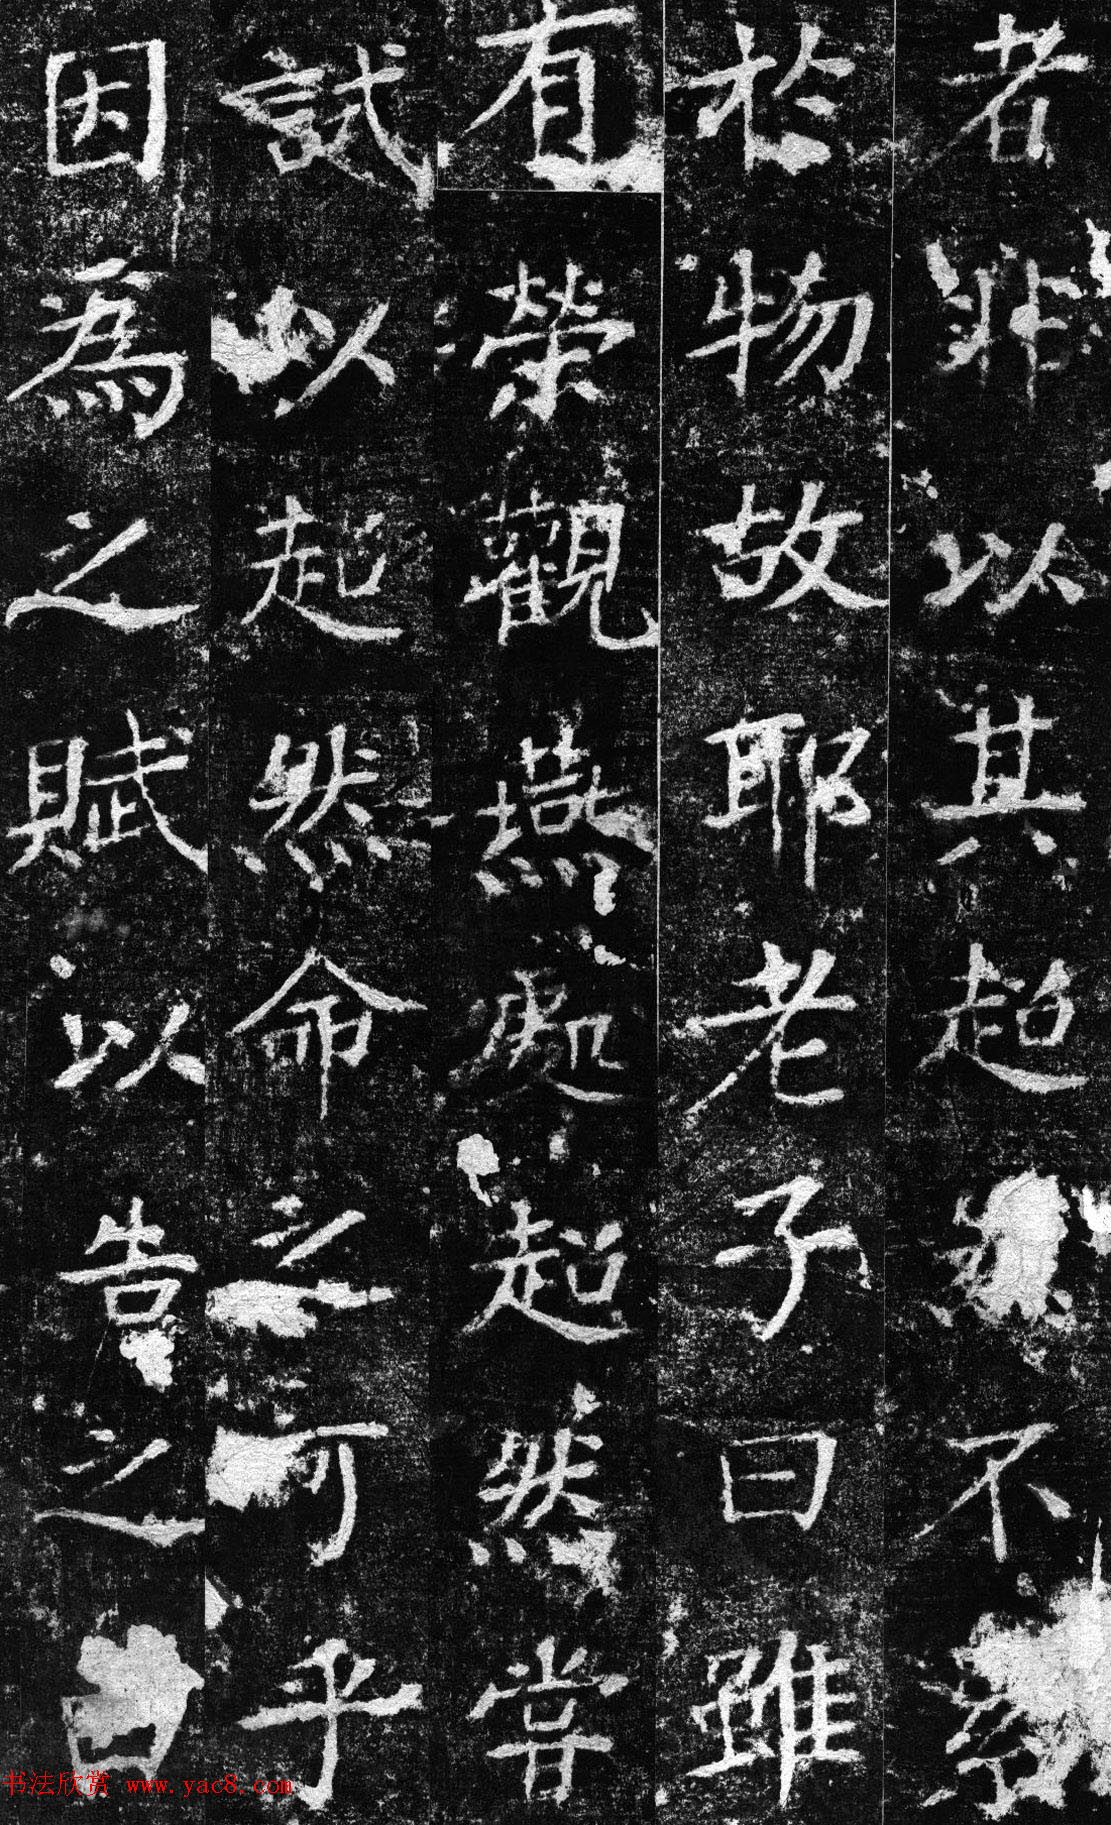 者非以其超然不累
於物故耶老子曰雖
有榮觀燕處超然嘗
試以超然命之可乎
因為之賦以告之曰
书法欣赏 www.yac8.com